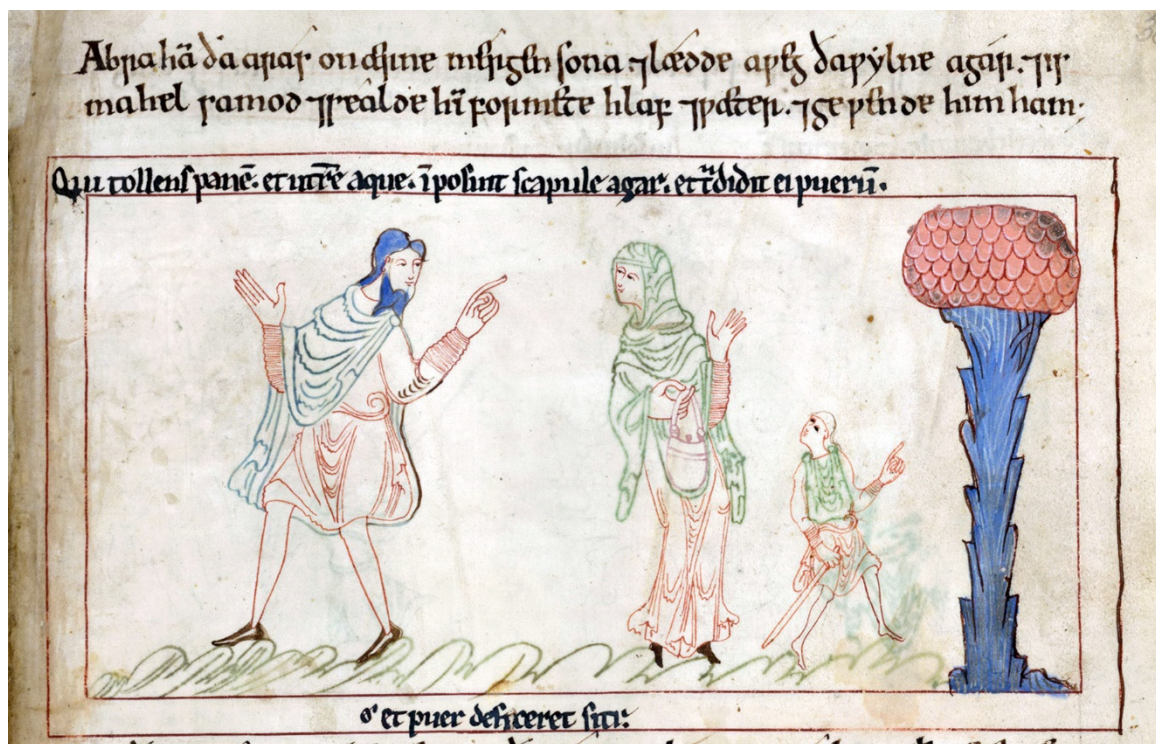 Abraha̅ ða aras on ðe̅re mergen sona ⁊ lædde aƿeg ða ƿylne agar. ⁊ is
mahel samod ⁊ sealde hi̅ formete hlaf ⁊ ƿæter. ⁊ geƿende him ham;
Qui tollens pane̅. et utre̅ aque. i̅posuit scapule agar. et t̅didit ei pueru̅.
et puer deficeret siti;